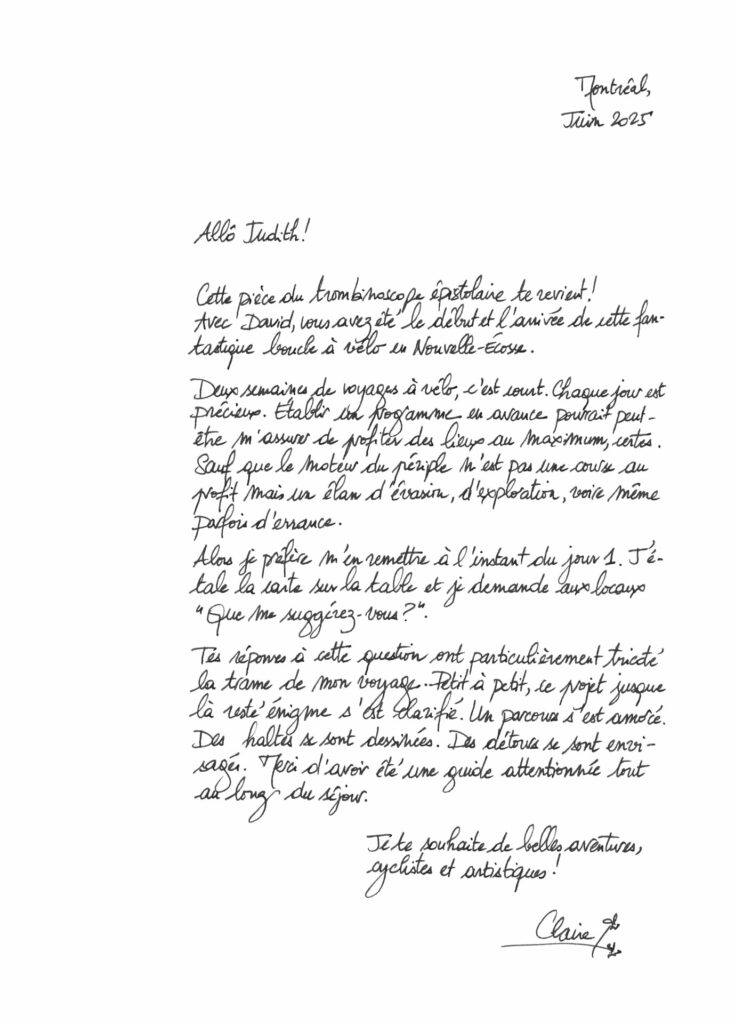 Montréal,
Juin 2025
Allô Judith!
Cette pièce du trombinoscope épistolaire te revient!
Avec David, vous avez été le début et l'arrivée de cette fan-
tastique boucle à vélo en Nouvelle-Écosse.
Deux semaines de voyages à vélo, c'est court. Chaque jour est
précieux. Établir un programme en avance pourait peut-
être m'assurer de profiter des lieux au maximum, certes.
Sauf que le moteur du périple n'est pas une course au
profit mais un élan d'évasion, d'exploration, voire même
parfois d'errance.
Alors je préfère m'en remettre à l'instant du jour 1. J'é-
tale la carte sur la table et je demande aux locaux
"Que me suggérez-vous?".
Tes réponses à cette question ont particulièrement tricoté
la trame de mon voyage. Petit à petit, ce projet jusque
là resté énigme s'est clarifié. Un parcours s'est amorcé.
Des haltes se sont dessinées. Des détours se sont envi-
sagés. Merci d'avoir été une guide attentionnée tout
au long du séjour.
Je te souhaite de belles aventures,
cyclistes et artistiques!
Claire